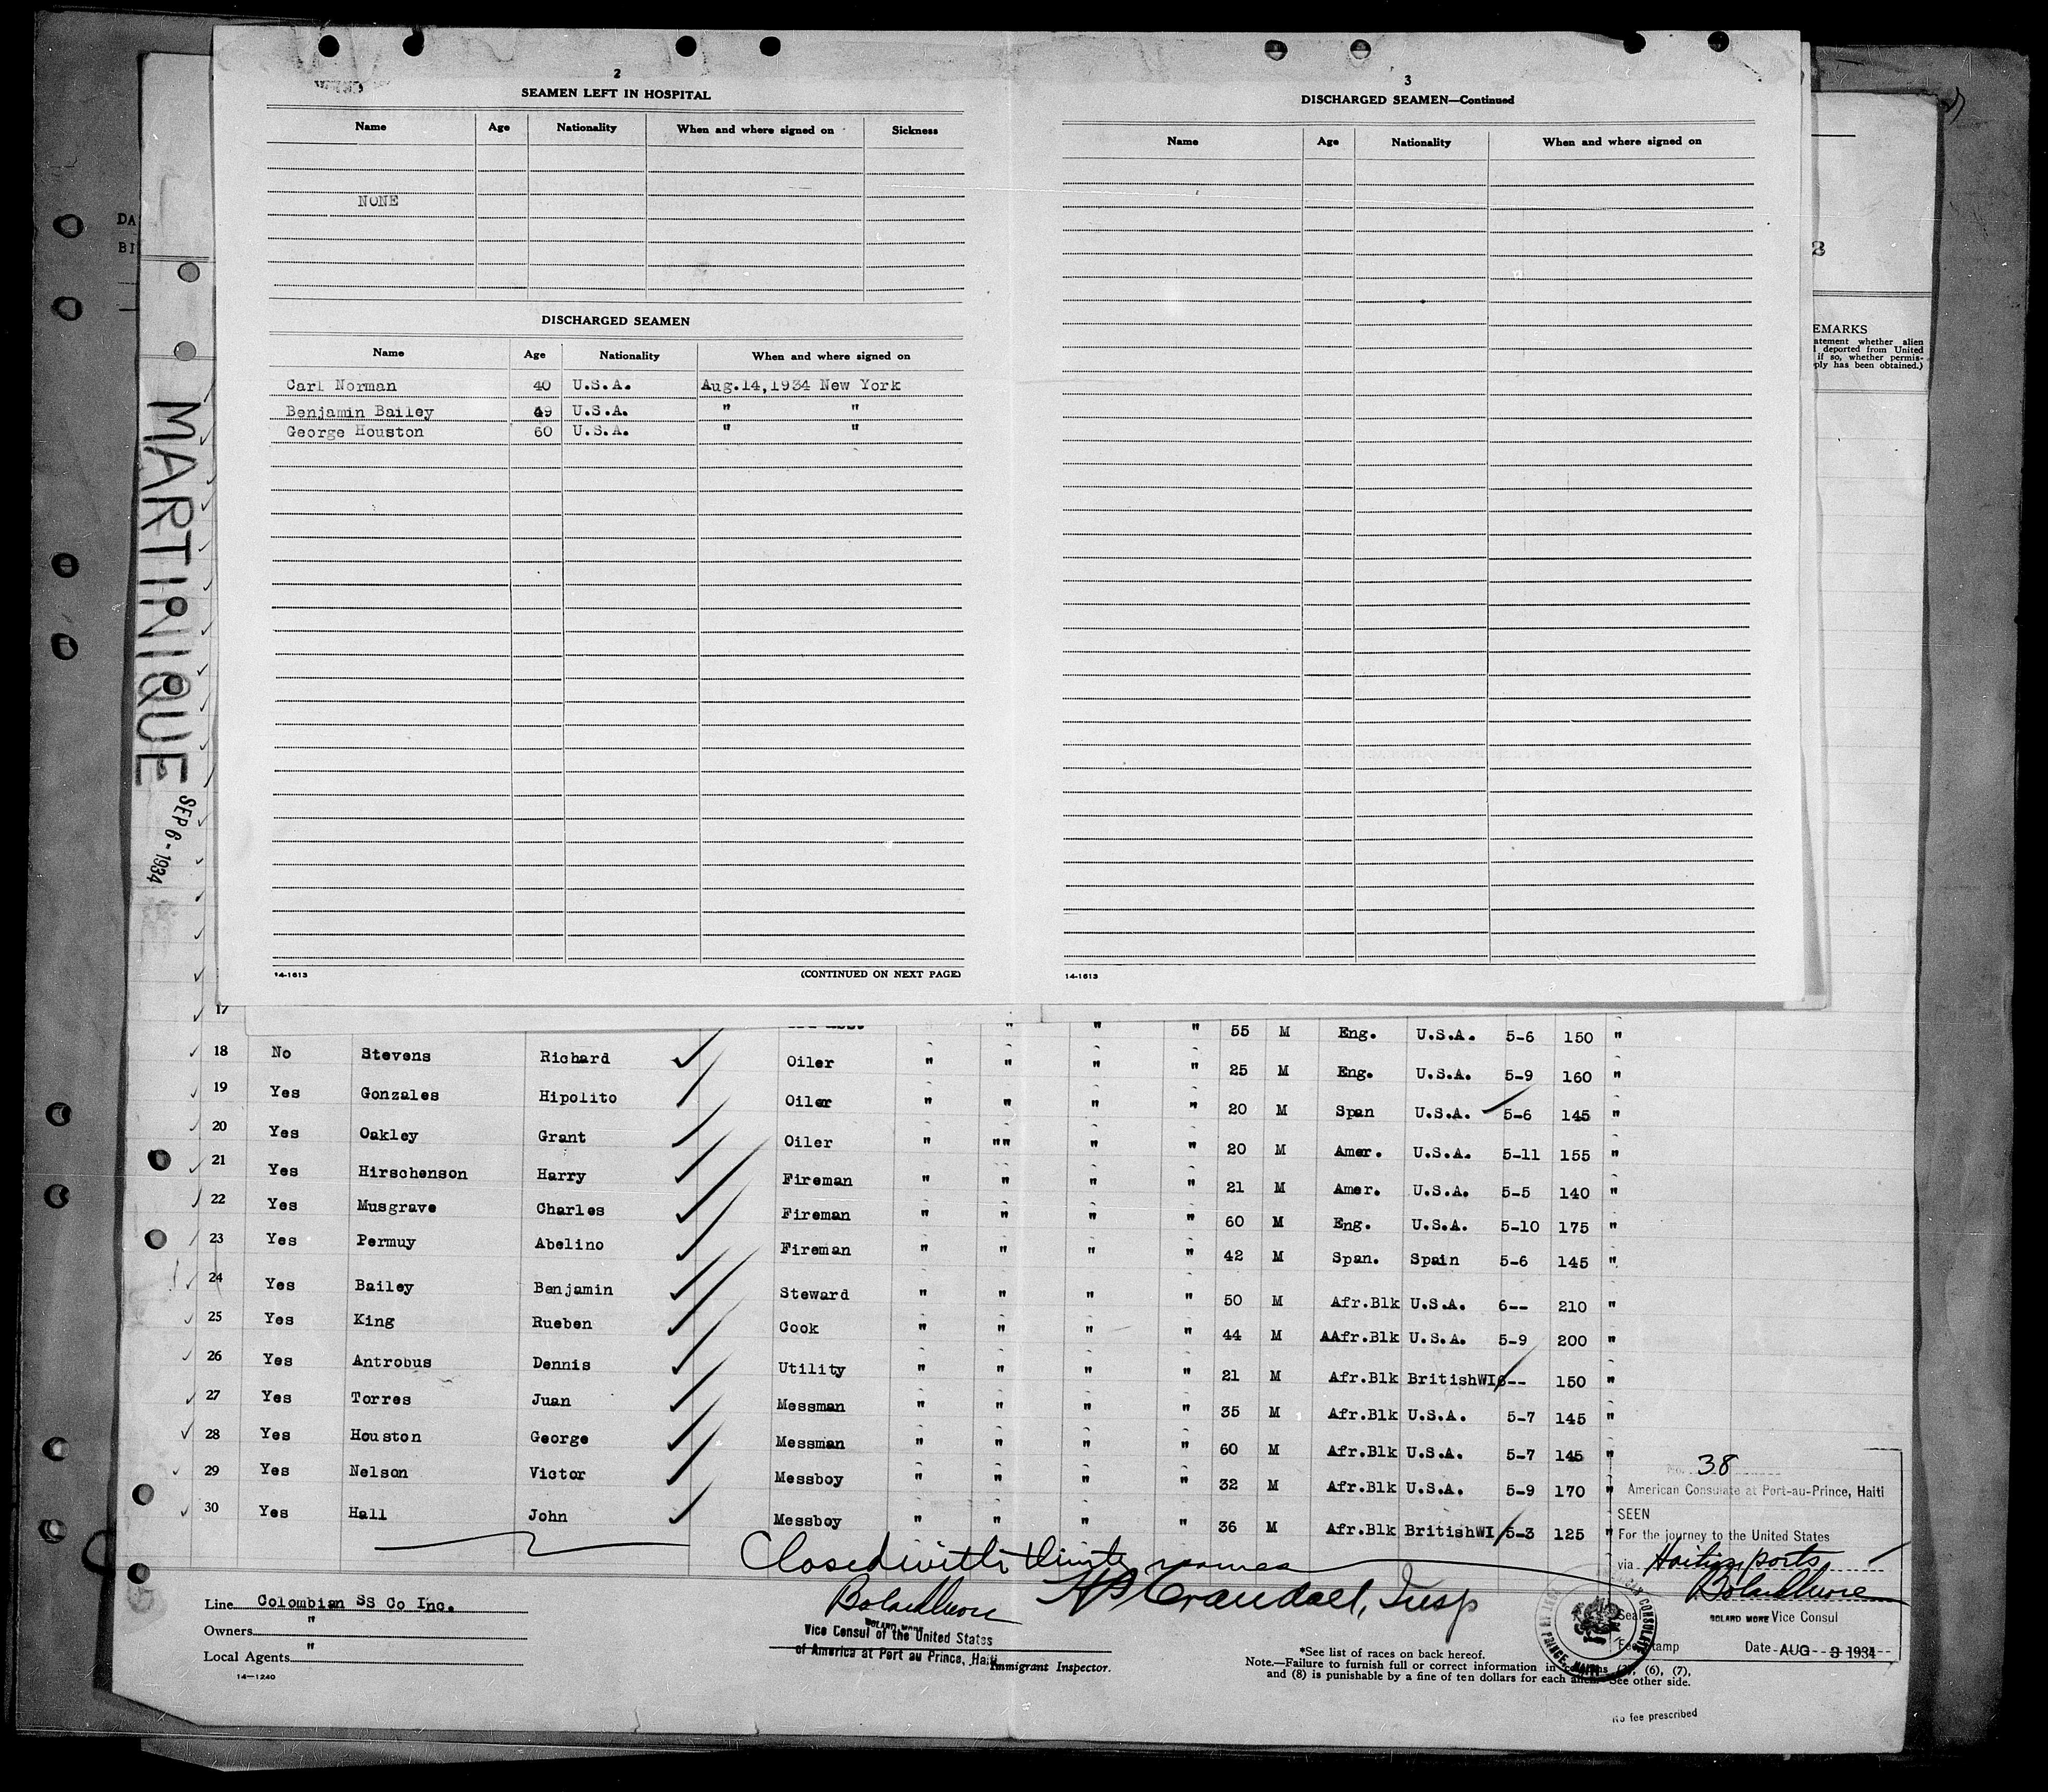 2
SEAMEN LEFT IN HOSPITAL
Name Age Nationality When and where signed on Sickness
NONE
DISCHARGED SEAMEN
Name Age Nationality When and where signed on
Carl Norman 40 U.S.A. Aug.14,1934 New York
Benjamin Bailey 49 U.S.A. " "
George Houston 60 U.S.A. " "
14-1613 (CONTINUED ON NEXT PAGE)
3
DISCHARGED SEAMEN—Continued
Name Age Nationality When and where signed on
14-1613
DA
BI
MARTINIQUE
SEP 6 - 1934
2
EMARKS
atement whether alien
deported from United
if so, whether permis-
ply has been obtained.)
17 " " " 55 M Eng. U.S.A. 5-6 150 "
18 No Stevens Richard Oiler " " " " 25 M Eng. U.S.A. 5-9 160 "
19 Yes Gonzales Hipolito Oiler " " " " 20 M Span U.S.A. 5-6 145 "
20 Yes Oakley Grant Oiler " "" " " 20 M Amer. U.S.A. 5-11 155 "
21 Yes Hirschenson Harry Fireman " " " " 21 M Amer. U.S.A. 5-5 140 "
22 Yes Musgrave Charles Fireman " " " " 60 M Eng. U.S.A. 5-10 175 "
23 Yes Permuy Abelino Fireman " " " " 42 M Span. Spain 5-6 145 "
24 Yes Bailey Benjamin Steward " " " " 50 M Afr.Blk U.S.A. 6-- 210 "
25 Yes King Rueben Cook " " " " 44 M AAfr.Blk U.S.A. 5-9 200 "
26 Yes Antrobus Dennis Utility " " " " 21 M Afr.Blk BritishWI 6-- 150 "
27 Yes Torres Juan Messman " " " " 35 M Afr.Blk U.S.A. 5-7 145 "
28 Yes Houston George Messman " " " " 60 M Afr.Blk U.S.A. 5-7 145 "
29 Yes Nelson Victor Messboy " " " " 32 M Afr.Blk U.S.A. 5-9 170 "
30 Yes Hall John Messboy " " " " 36 M Afr.Blk BritishWI 5-3 125 "
No. 38
American Consulate at Port-au-Prince, Haiti
SEEN
For the journey to the United States
via Haitian ports
Boland More
BOLAND MORE Vice Consul
Seal
Fee Stamp Date AUG 3 1934
No fee prescribed
Closed with thirty names
Boland More H P Crandall, Insp
BOLAND MORE
Vice Consul of the United States
of America at Port au Prince, Haiti
Immigrant Inspector.
Line Colombian SS Co Inc.
Owners "
Local Agents "
14—1240
*See list of races on back hereof.
Note.—Failure to furnish full or correct information in columns (6), (7),
and (8) is punishable by a fine of ten dollars for each alien. See other side.